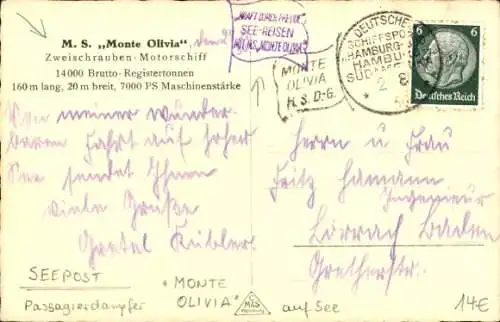 M. S. „Monte Olivia",
Zweischrauben-Motorschiff
14000 Brutto-Registertonnen
160 m lang, 20 m breit, 7000 PS Maschinenstärke
KRAFT DURCH FREUDE
SEE-REISEN
M.S. „MONTE OLIVIA"
MONTE
OLIVIA
H.S.D.G.
DEUTSCHE
SCHIFFSPOST
HAMBURG-
SÜD
6 6
Deutsches Reich
Von meiner wunder-
baren Fahrt auf hoher
See sendet Ihnen
viele Grüße
Gretel Kübler
Herrn u. Frau
Fritz Hamann
Ingenieur
Lörrach Baden
Gretherstr.
SEEPOST
Passagierdampfer
"MONTE
OLIVIA"
M&S
Hamburg
auf See
14€